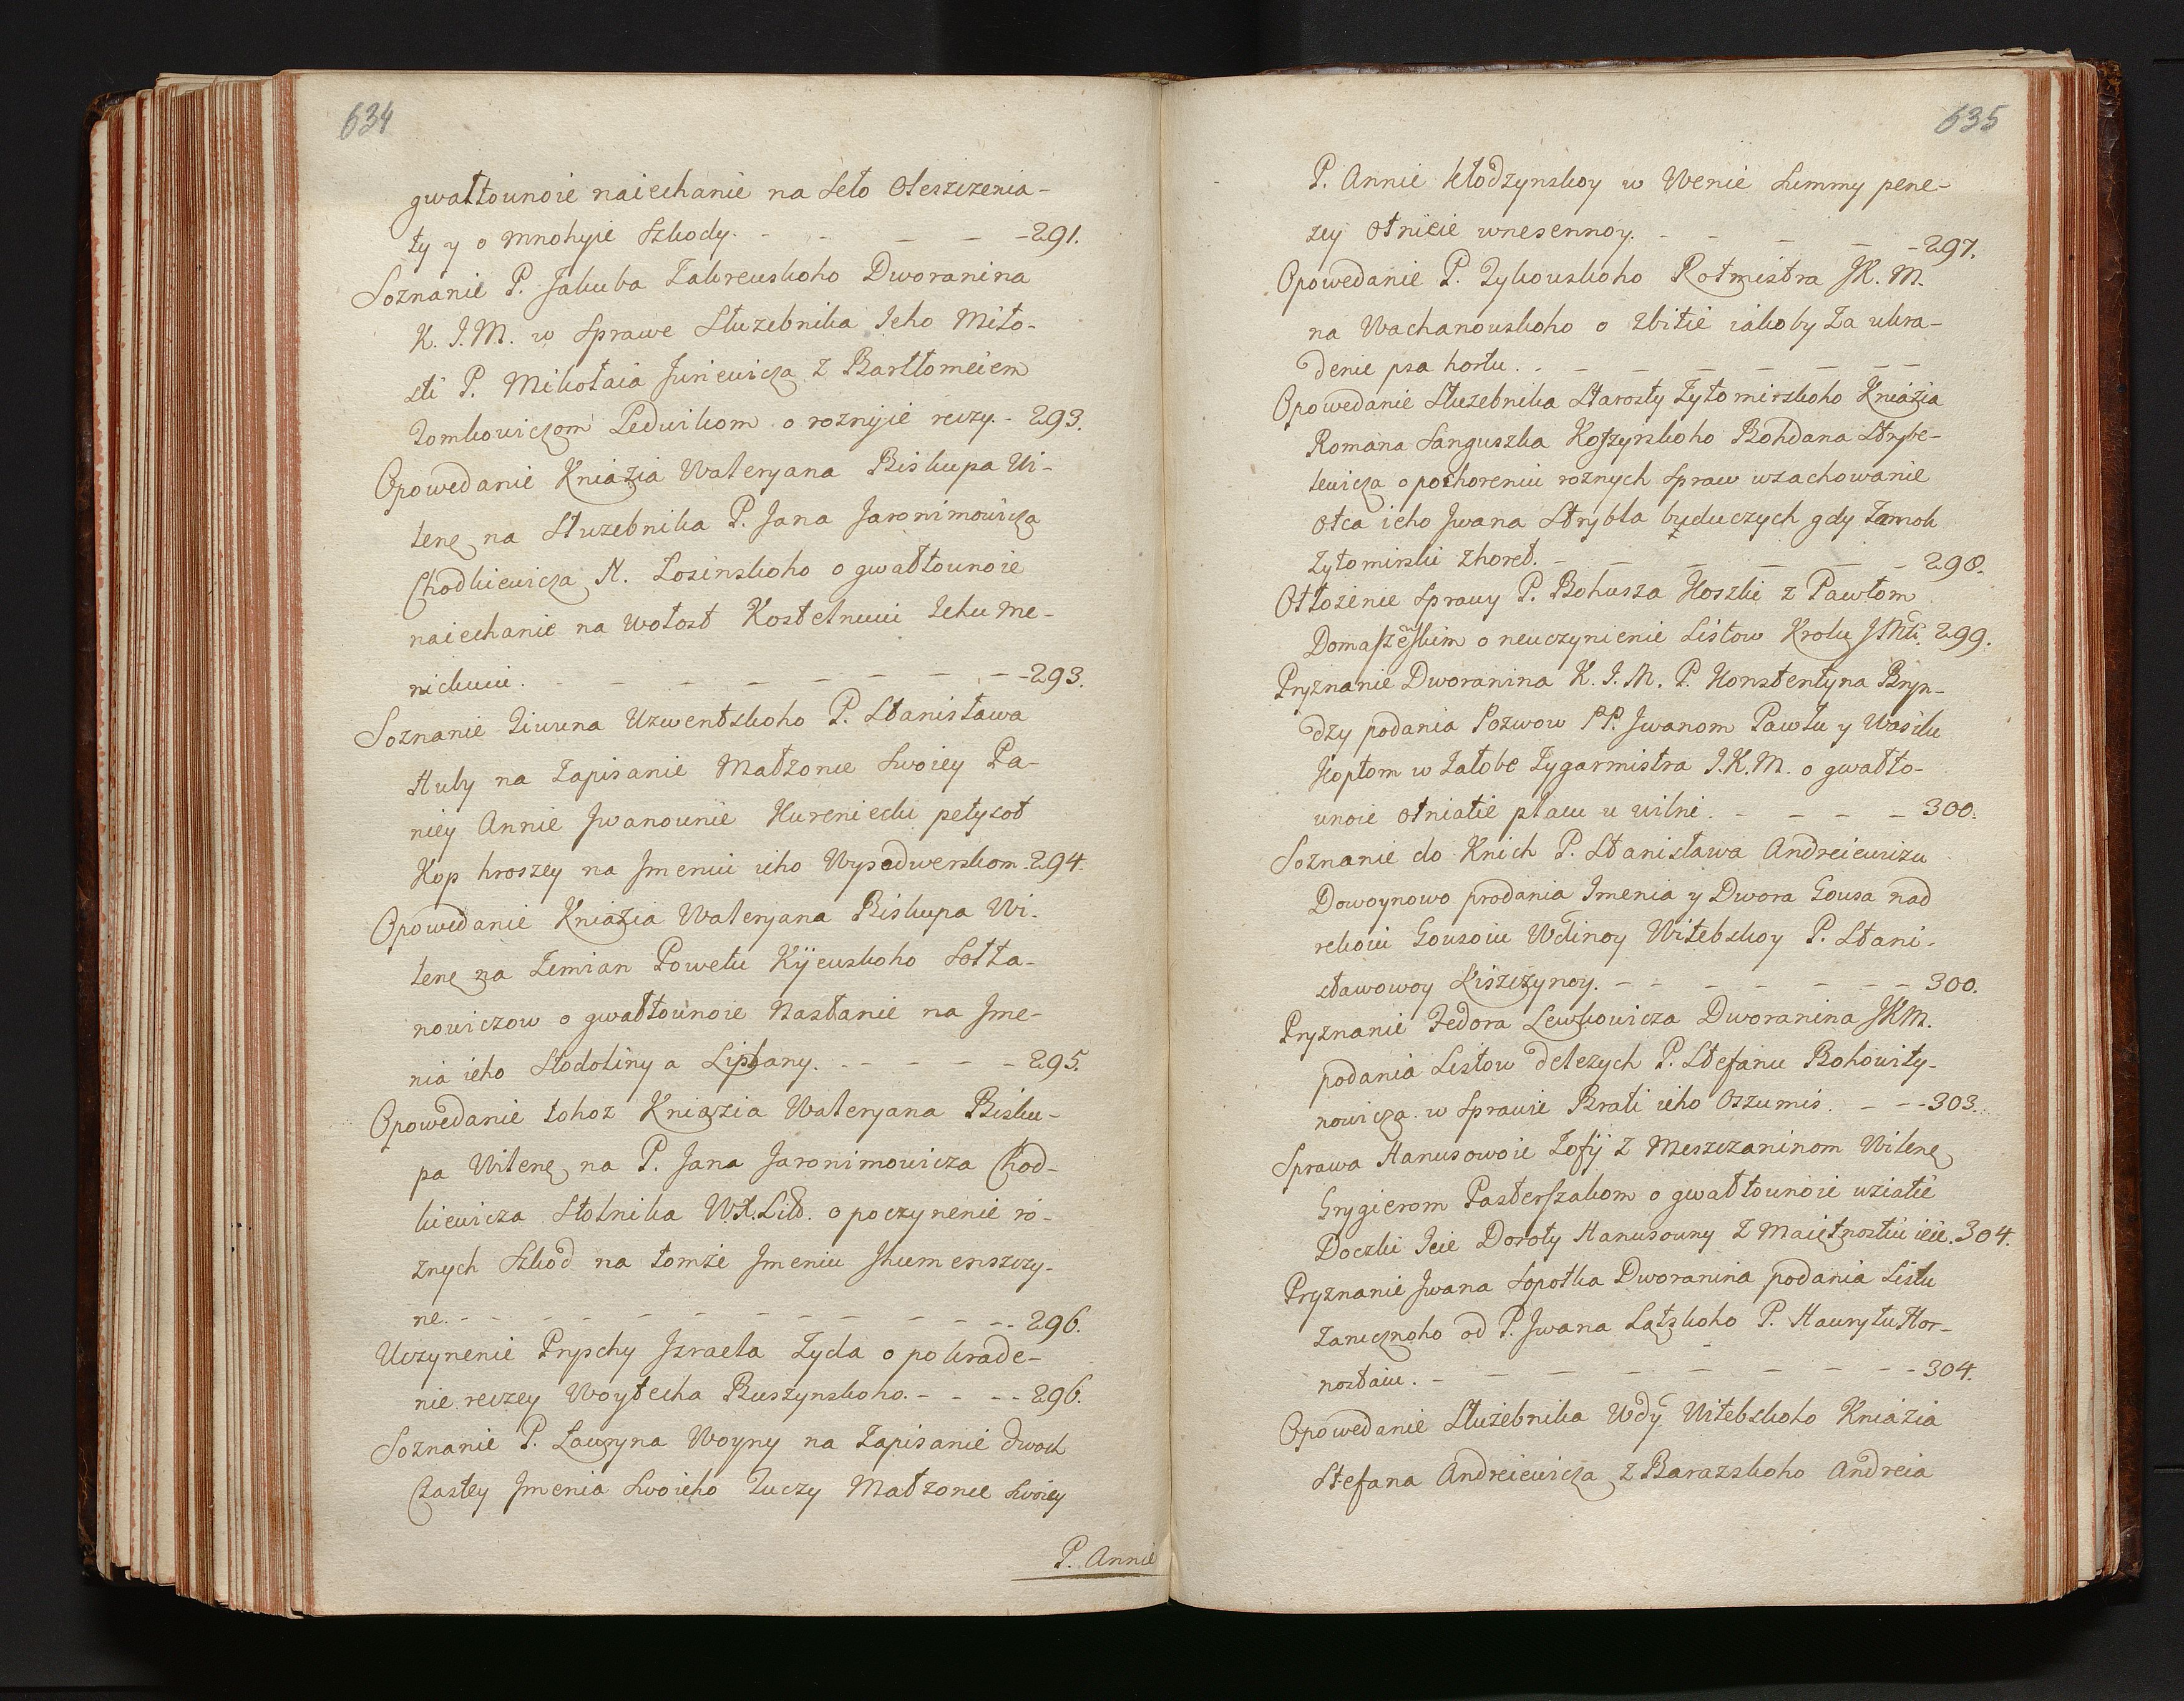 634
gwałtounoie naiechanie na Seło Oleszczenia-
ty y o mnohyie Szkody. - - - - - 291.
Soznanie P. Jakuba Zakreuskoho Dworanina
K. J. M. w Sprawe Służebnika Jeho Miło-
sti P. Mikołaia Juriewicza z Bartłomeiem
Zomkowiczom Ledwikom o roznyie reczy. - 293.
Opowedanie Kniazia Waleryana Biskupa Wi-
lene na Służebnika P. Jana Jaronimowicza
Chodkiewicza N. Łosinskoho o gwałtounoie
naiechanie na Wołost Kostelnuiu Jehume-
nickuiu. - - - - - - - - 293.
Soznanie Ziwuna Uzwentskoho P. Stanisława
Huby na Zapisanie Małzonce Swoiey Pa-
niey Annie Jwanounie Kureniecki petysot
Kop hroszey na Jmeniu ieho Wysodwerskom. 294.
Opowedanie Kniazia Waleryana Biskupa Wi-
lene na Zemian Powetu Kijeuskoho Sołta-
nowiczow o gwałtounoie Nasłanie na Jme-
nia ieho Stodoliny a Liplany. - - - - - 295.
Opowedanie tohoz Kniazia Waleryana Bisku-
pa Wilene na P. Jana Jaronimowicza Chod-
kiewicza Stolnika W. X. Lit. o poczynenie ro-
znych Szkod na tomże Jmeniu Jhumenszczy-
ne. - - - - - - - - - - 296.
Uczynenie Prysehy Jzraela Zyda o pokrade-
nie reczey Woytecha Ruszynskoho. - - - - 296.
Soznanie P. Lauryna Woyny na Zapisanie dwoch
Czastey Jmenia Swoieho Zuczy Małzonce Swoiey
P. Annie
635
P. Annie Kłodzynskoy w Wenie Summy pene-
zey otnieie wnesennoy. - - - - - 297.
Opowedanie P. Zykouskoho Rotmistra JK. M.
na Wachanouskoho o zbitie iakoby Za ukra-
denie psa hortu. - - - - - - -
Opowedanie Służebnika Starosty Zytomirskoho Kniazia
Romana Sanguszka Koszyrskoho Bohdana Strybe-
lewicza o pohoreniu roznych Spraw wzachowanie
otca ieho Jwana Strybla buduczych gdy Zamok
Zytomirski zhoreł. - - - - - - 298.
Otłożenie Sprawy P. Bohusza Hoszki z Pawłom
Domaszewskim o neuczynienie Listow Krolu JMti. 299.
Pryznanie Dworanina K. J. M. P. Konstentyna Bryn-
dzy podania Pozwow PP. Jwanom Pawłu y Wasilu
Kopłom w Załobe Zygarmistra J. K. M. o gwałto-
unoie otniatie płacu u wilni. - - - - 300.
Soznanie do Knich P. Stanisława Andreiewiczu
Dowoynowo prodania Jmenia y Dwora Gousa nad
rekoiu Gousoiu Wdinoy Witebskoy P. Stani-
sławowoy Kiszczynoy. - - - - - - - 300.
Pryznanie Fedora Lewkowicza Dworanina JKM.
podania Listow delczych P. Stefanu Bohowity-
nowicza w Sprawie Brati ieho Oszumis. - - - 303.
Sprawa Hanusowoie Zofij z Meszczaninom Wilene
Grygierom Pasterszakom o gwałtounoie uziatie
Doczki Jeie Doroty Hanusouny z Maietnostiu ieie. 304.
Pryznanie Jwana Sopotka Dworanina podania Listu
Zarucznoho od P. Jwana Latskoho P. Hauryłu Hor-
nostaiu. - - - - - - - - 304.
Opowedanie Służebnika Wdy Witebskoho Kniazia
Stefana Andreiewicza z Barazskoho Andreia